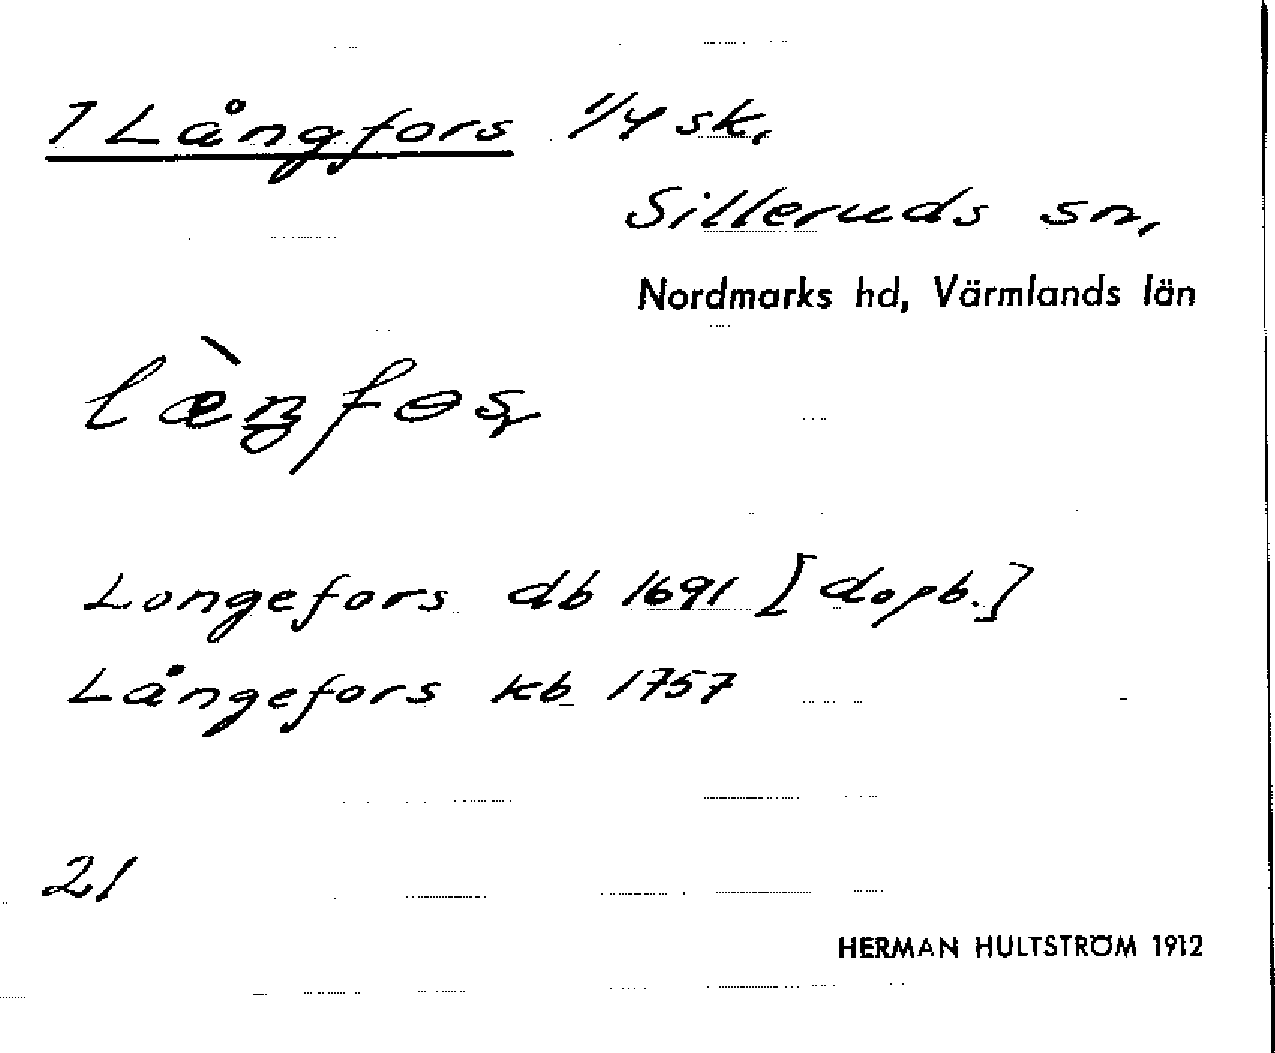 1 Långfors 1/4 sk,
Silleruds sn,
Nordmarks hd, Värmlands län
Longefors db 1691 [dopb.]
Långefors kb 1757
21
HERMAN HULTSTRÖM 1912